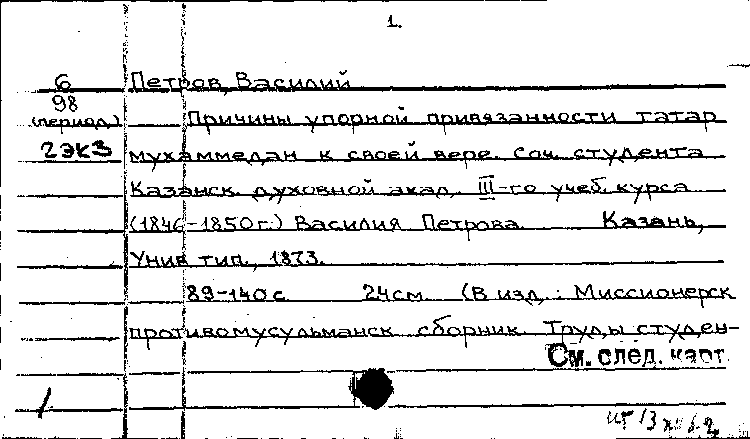 1.
6 Петров, Василий
98
(период.) Причины упорной привязанности татар
2экз мухаммедан к своей вере. Соч. студента
Казанск. духовной акад. III-го учеб. курса
(1846-1850 г.) Василия Петрова. Казань,
Унив. тип., 1873.
89-140 с. 24 см. (В изд.: Миссионерск.
противомусульманск. сборник. Труды студен-
См. след. карт.